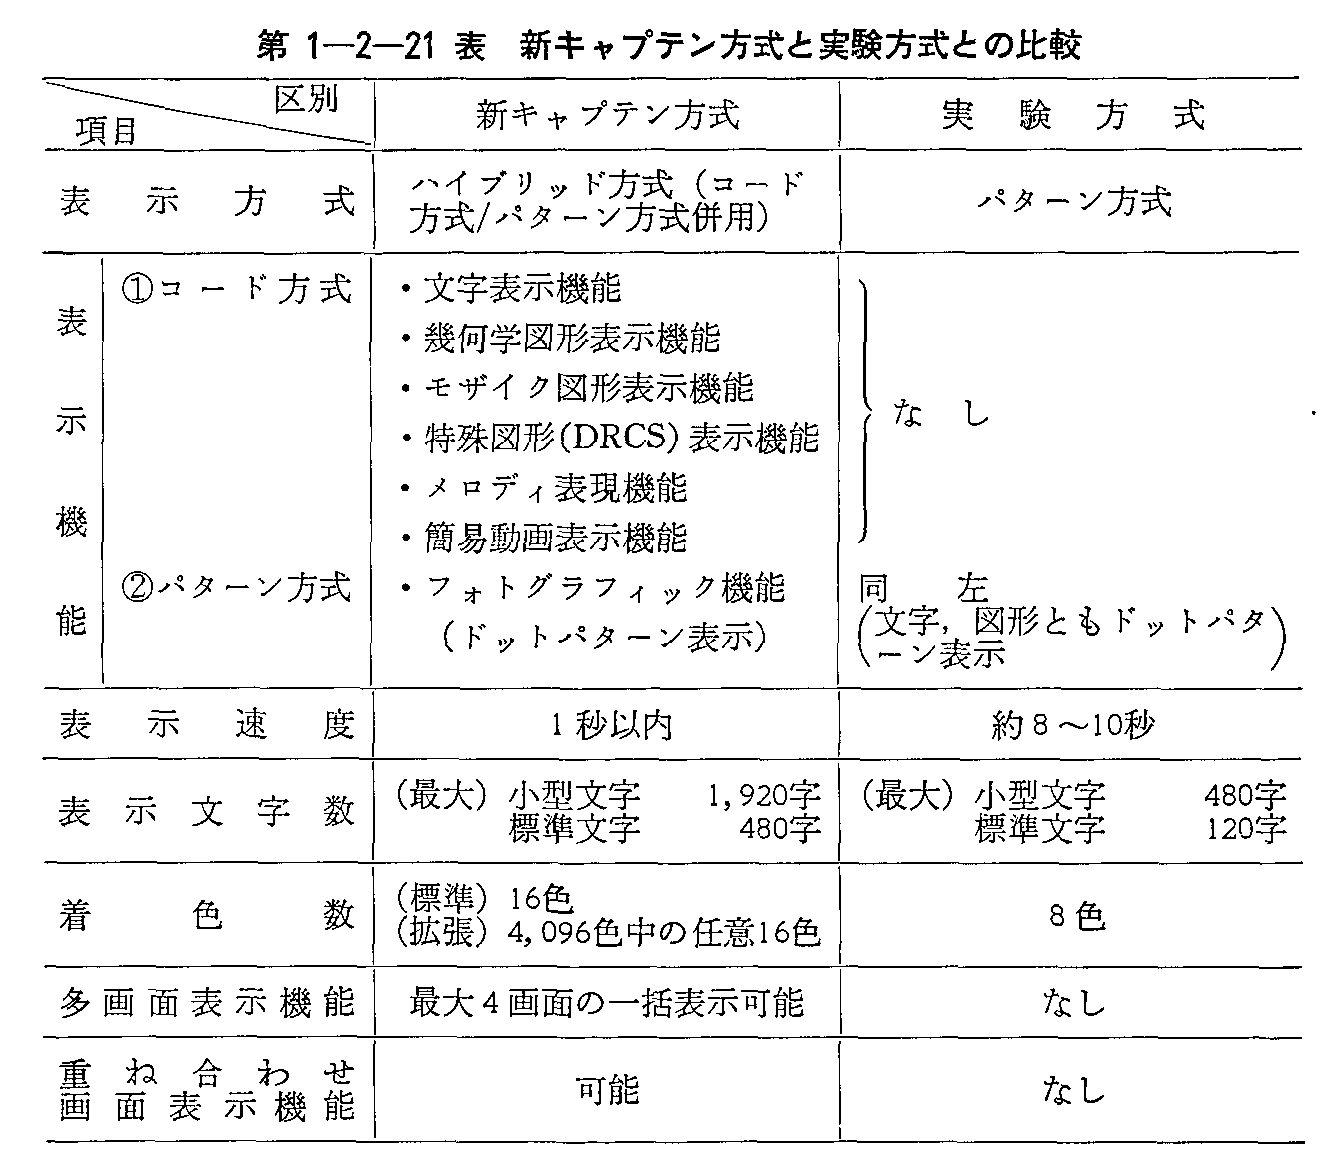 第 1―2―21 表　新キャプテン方式と実験方式との比較
区別
項目
新キャプテン方式
実験方式
表示方式
ハイブリッド方式（コード
方式/パターン方式併用）
パターン方式
表示機能
①コード方式
・文字表示機能
・幾何学図形表示機能
・モザイク図形表示機能
・特殊図形(DRCS)表示機能
・メロディ表現機能
・簡易動画表示機能
なし
②パターン方式
・フォトグラフィック機能
（ドットパターン表示）
同左
(文字，図形ともドットパタ
ーン表示)
表示速度
1秒以内
約8～10秒
表示文字数
（最大）小型文字 1,920字
標準文字 480字
（最大）小型文字 480字
標準文字 120字
着色数
（標準）16色
（拡張）4,096色中の任意16色
8色
多画面表示機能
最大4画面の一括表示可能
なし
重ね合わせ
画面表示機能
可能
なし